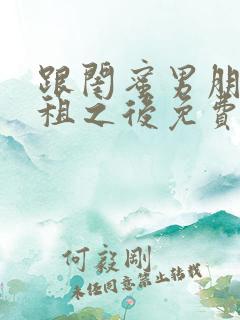 跟閨蜜男朋
租之後免費
何毅剛
未经同意禁止转载